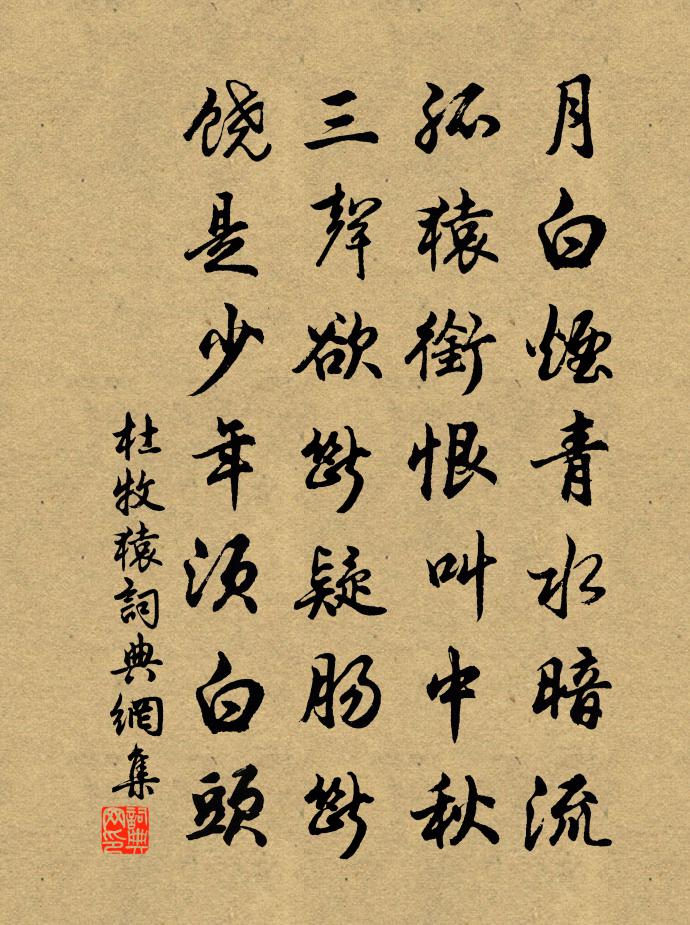 月白煙青水暗流
孤猿銜恨叫中秋
三聲欲斷疑腸斷
饒是少年須白頭
杜牧猿詞典網集
詞典網印